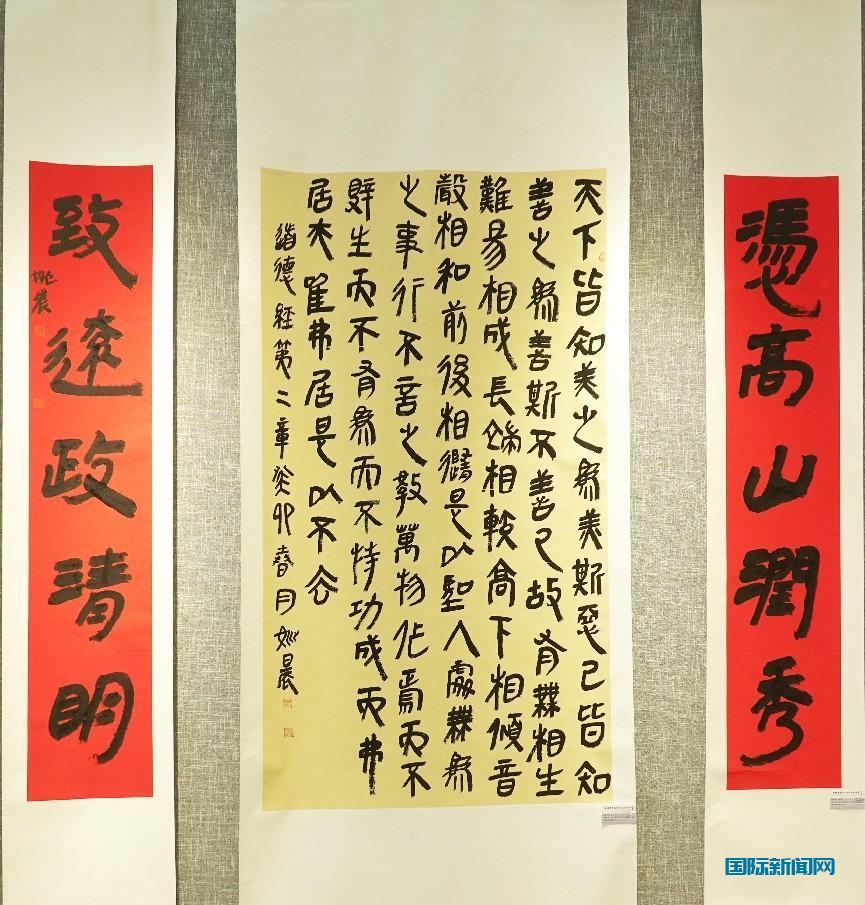 憑高山潤秀
天下皆知美之為美斯惡已皆知
善之為善斯不善已故有無相生
難易相成長短相較高下相傾音
聲相和前後相隨是以聖人處無為
之事行不言之教萬物作焉而不
辭生而不有為而不恃功成而弗
居夫唯弗居是以不去
道德經第二章癸卯春月姚晨
致遠政清明
姚晨
国际新闻网